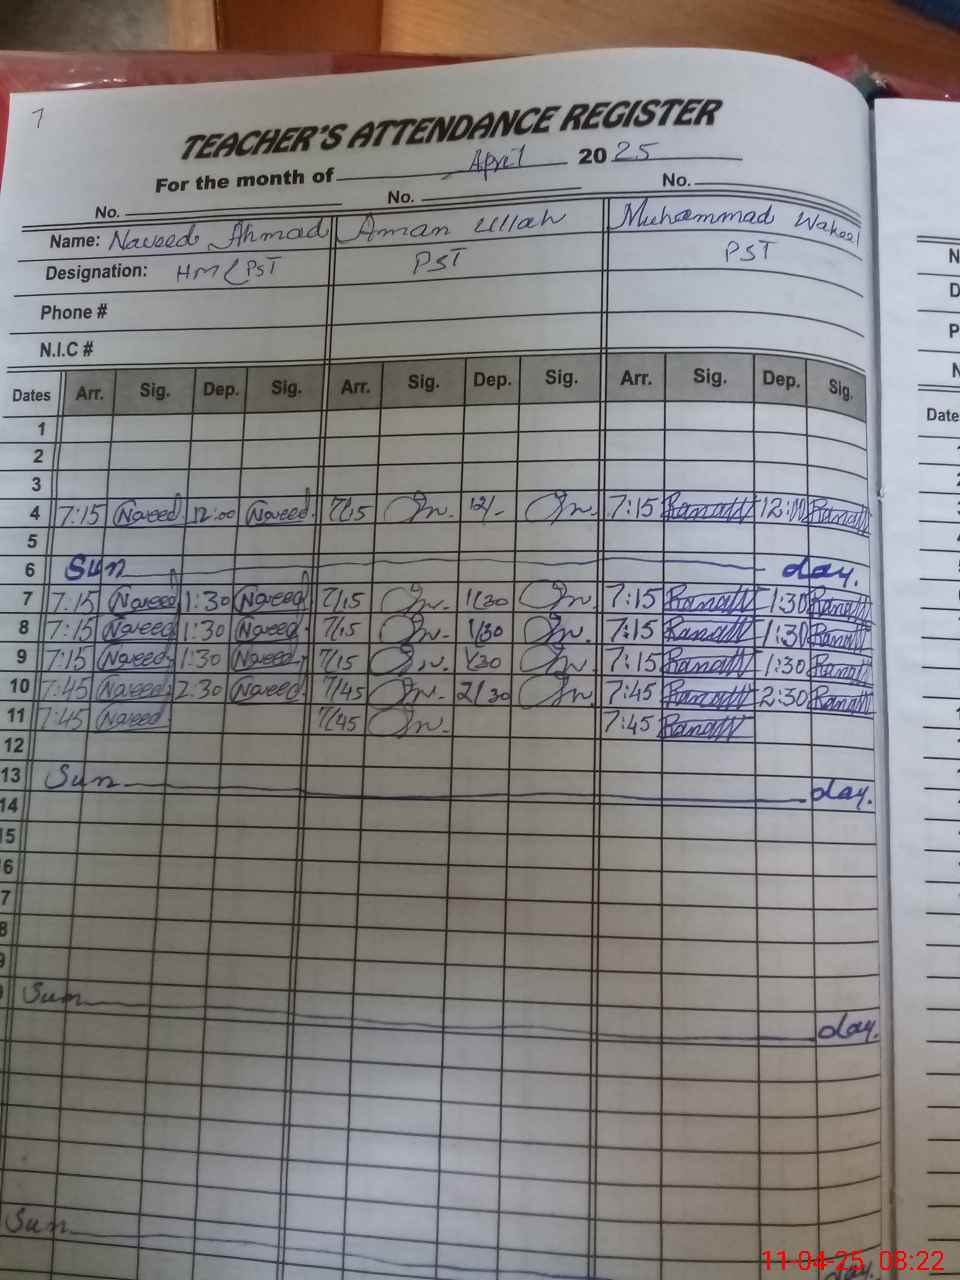 7
TEACHER'S ATTENDANCE REGISTER
For the month of April 2025
No. No. No.
Name: Naveed Ahmad Aman Ullah Muhammad Wakeel
Designation: HM/PST PST PST
Phone #
N.I.C #
Dates Arr. Sig. Dep. Sig. Arr. Sig. Dep. Sig. Arr. Sig. Dep. Sig.
1
2
3
4 7:15 Naveed 12:00 Naveed 7/15 12/- 7:15 12:00
5
6 Sun day.
7 7:15 Naveed 1:30 Naveed 7/15 1/30 7:15 1:30
8 7:15 Naveed 1:30 Naveed 7/15 1/30 7:15 1:30
9 7:15 Naveed 1:30 Naveed 7/15 1/30 7:15 1:30
10 7:45 Naveed 2:30 Naveed 7/45 2/30 7:45 2:30
11 7:45 Naveed 7/45 7:45
12
13 Sun day.
14
15
6
7
8
9
Sun day.
Sun day.
N
D
P
N
Date
11-04-25 08:22